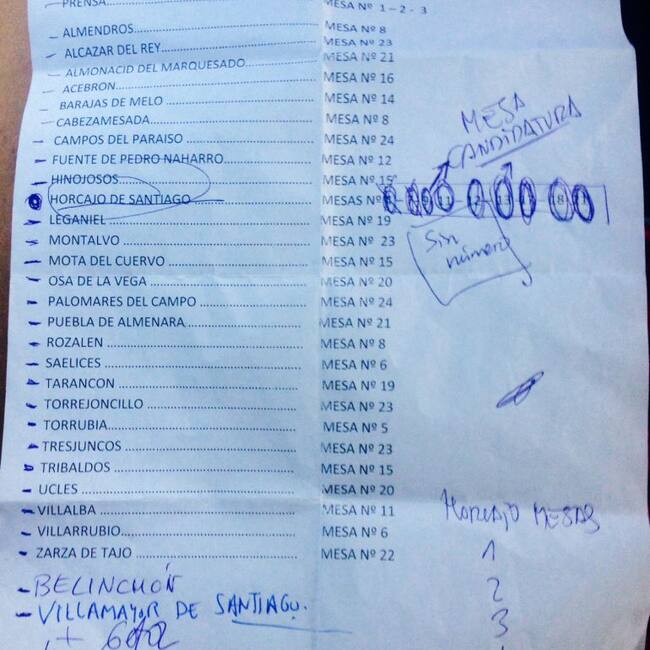 PRENSA MESA Nº 1 – 2 - 3
ALMENDROS MESA Nº 8
ALCAZAR DEL REY MESA Nº 23
ALMONACID DEL MARQUESADO MESA Nº 21
ACEBRON MESA Nº 16
BARAJAS DE MELO MESA Nº 14
CABEZAMESADA MESA Nº 8
CAMPOS DEL PARAISO MESA Nº 24
FUENTE DE PEDRO NAHARRO MESA Nº 12
HINOJOSOS MESA Nº 15
HORCAJO DE SANTIAGO MESAS Nº
LEGANIEL MESA Nº 19
MONTALVO MESA Nº 23
MOTA DEL CUERVO MESA Nº 15
OSA DE LA VEGA MESA Nº 20
PALOMARES DEL CAMPO MESA Nº 24
PUEBLA DE ALMENARA MESA Nº 21
ROZALEN MESA Nº 8
SAELICES MESA Nº 6
TARANCON MESA Nº 19
TORREJONCILLO MESA Nº 23
TORRUBIA MESA Nº 5
TRESJUNCOS MESA Nº 23
TRIBALDOS MESA Nº 15
UCLES MESA Nº 20
VILLALBA MESA Nº 11
VILLARRUBIO MESA Nº 6
ZARZA DE TAJO MESA Nº 22
- BELINCHÓN
- VILLAMAYOR DE SANTIAGO.
MESA
CANDIDATURA
Sin
número
HORCAJO MESAS
1
2
3